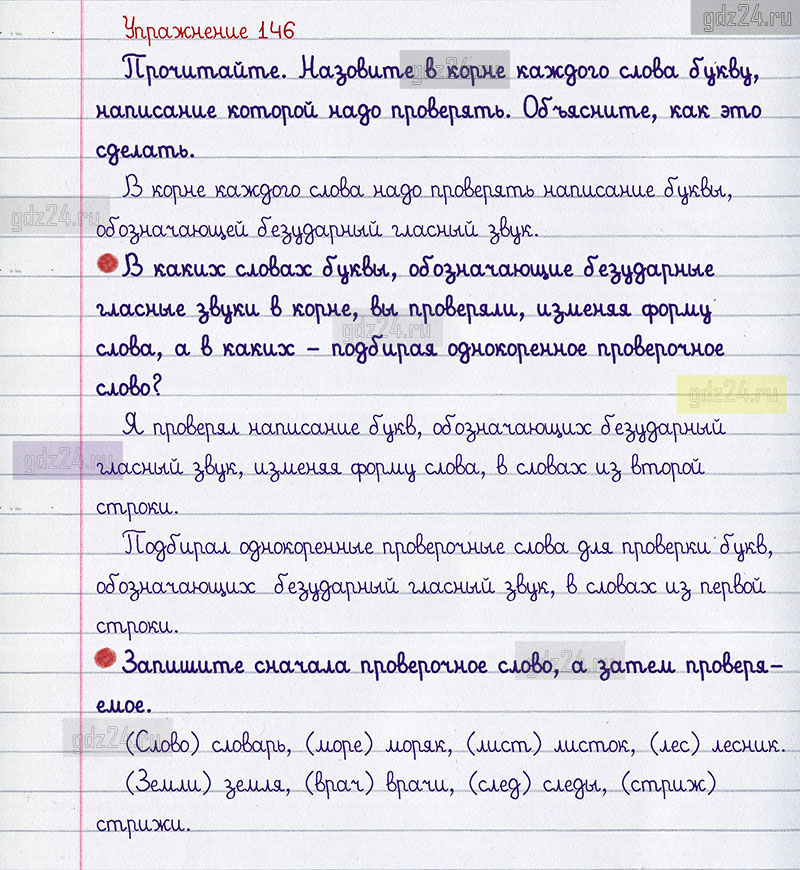 gdz24.ru
Упражнение 146
Прочитайте. Назовите в корне каждого слова букву,
gdz24.ru
написание которой надо проверять. Объясните, как это
сделать.
В корне каждого слова надо проверять написание буквы,
gdz24.ru
обозначающей безударный гласный звук.
В каких словах буквы, обозначающие безударные
гласные звуки в корне, вы проверяли, изменяя форму
gdz24.ru
слова, а в каких – подбирая однокоренное проверочное
слово?
gdz24.ru
Я проверял написание букв, обозначающих безударный
gdz24.ru
гласный звук, изменяя форму слова, в словах из второй
строки.
Подбирал однокоренные проверочные слова для проверки букв,
обозначающих безударный гласный звук, в словах из первой
строки.
Запишите сначала проверочное слово, а затем проверя-
gdz24.ru
емое.
gdz24.ru
(Слово) словарь, (море) моряк, (лист) листок, (лес) лесник.
(Земли) земля, (врач) врачи, (след) следы, (стриж)
стрижи.